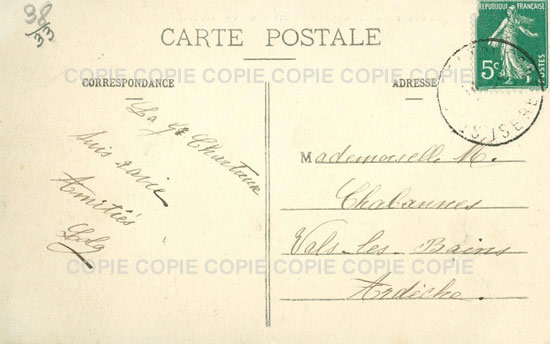 98
3/3
RÉPUBLIQUE FRANÇAISE
5c
POSTES
ISERE
CARTE POSTALE
COPIE COPIE COPIE COPIE COPIE COPIE
CORRESPONDANCE
ADRESSE
La Gde Chartreuse
Suis ravie
Amitiés
Mademoiselle M.
Chabannes
Vals-les-Bains
Ardèche.
COPIE COPIE COPIE COPIE COPIE COPIE